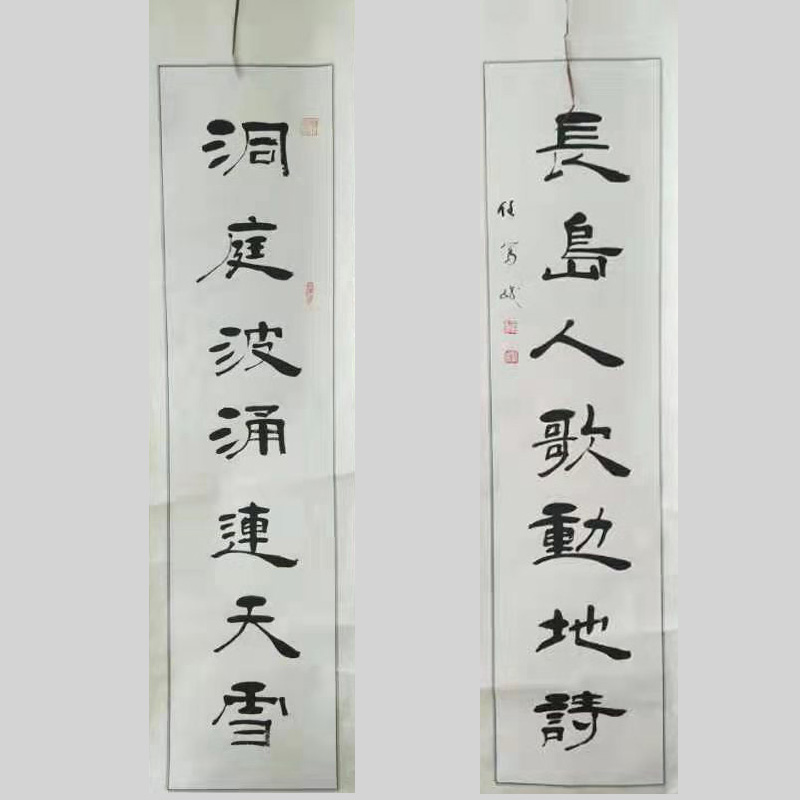 洞庭波涌連天雪
長島人歌動地詩